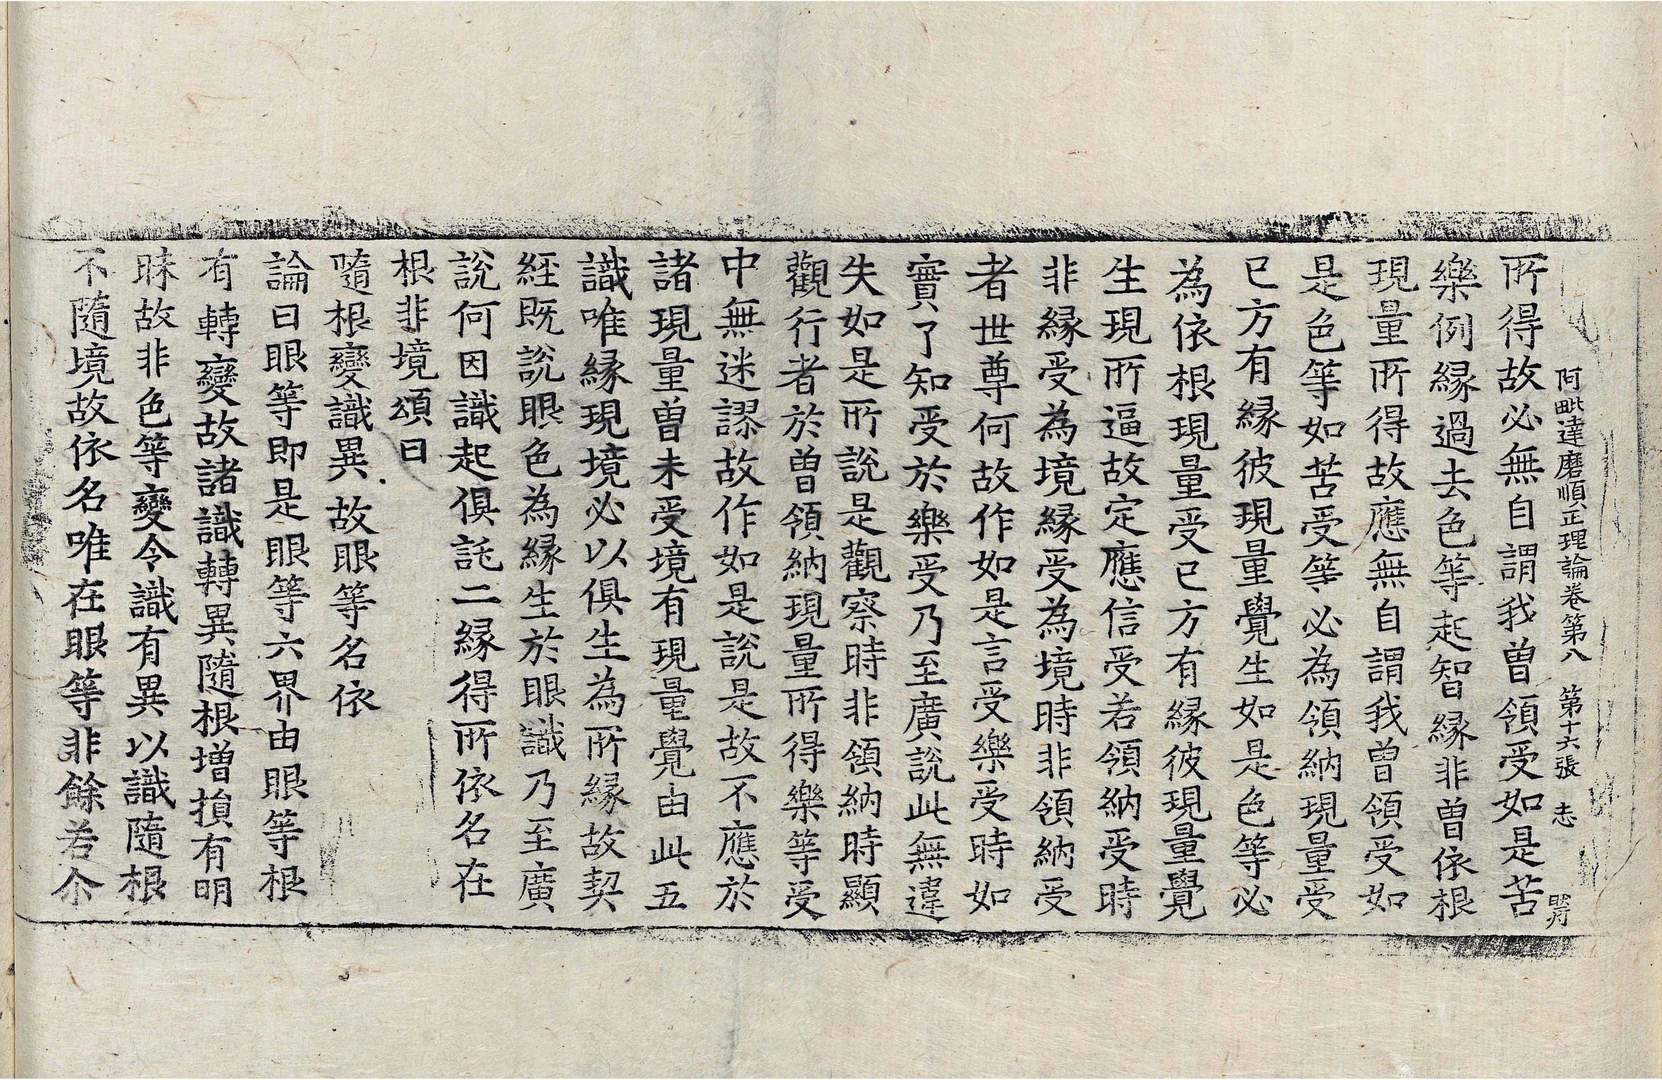 阿毗達磨順正理論卷第八 第十六張 志
所得故必無自謂我曾領受如是苦
樂例縁過去色等起智縁非曾依根
現量所得故應無自謂我曾領受如
是色等如苦受等必為領納現量受
已方有縁彼現量覺生如是色等必
為依根現量受已方有縁彼現量覺
生現所逼故定應信受若領納受時
非縁受為境縁受為境時非領納受
者世尊何故作如是言受樂受時如
實了知受於樂受乃至廣說此無違
失如是所說是觀察時非領納時顯
觀行者於曾領納現量所得樂等受
中無迷謬故作如是說是故不應於
諸現量曾未受境有現量覺由此五
識唯縁現境必以俱生為所縁故契
經既說眼色為縁生於眼識乃至廣
說何因識起俱託二縁得所依名在
根非境頌曰
隨根變識異故眼等名依
論曰眼等即是眼等六界由眼等根
有轉變故諸識轉異隨根增損有明
昧故非色等變令識有異以識隨根
不隨境故依名唯在眼等非餘若尒